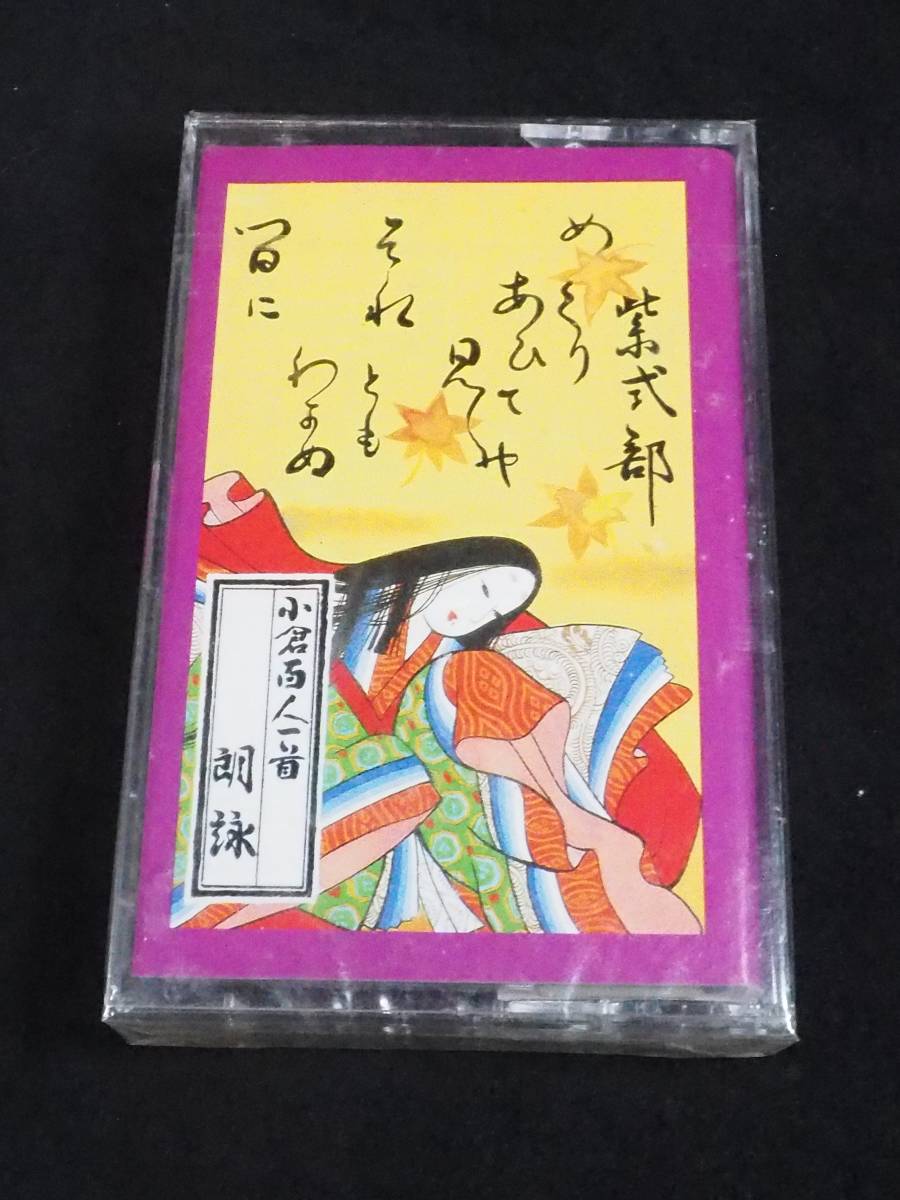 紫式部
めくり
あひて
見しや
それ
とも
わかぬ
間に
小倉百人一首
朗詠